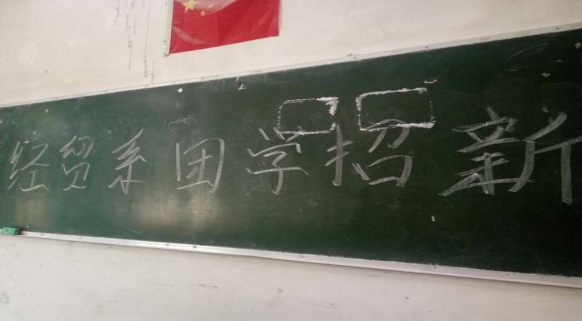 经贸系团学招新